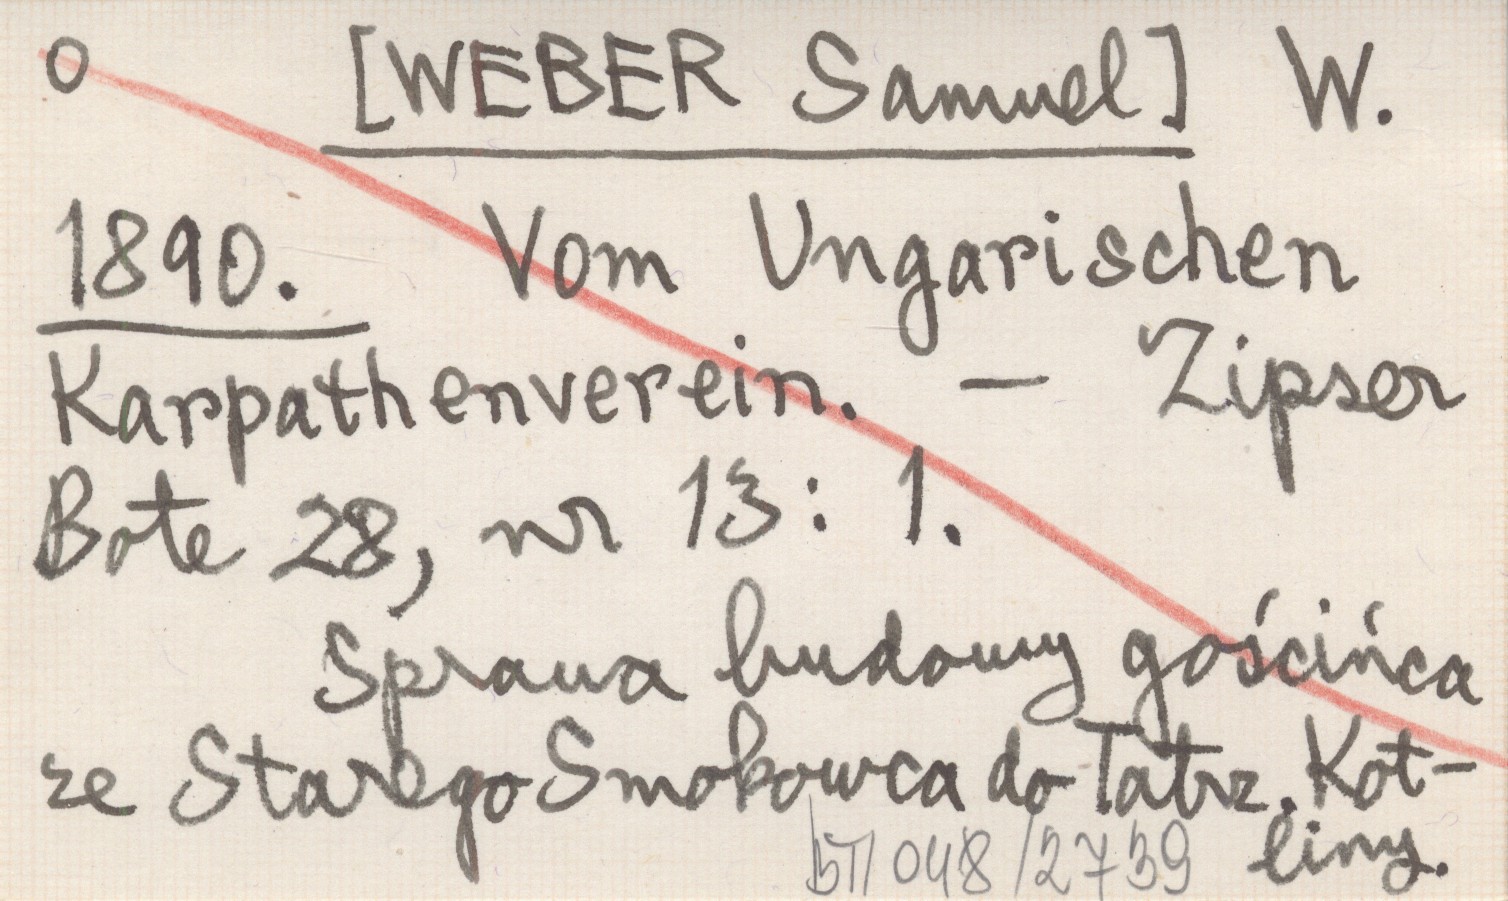 O [WEBER Samuel] W.
1890. Vom Ungarischen
Karpathenverein. — Zipser
Bote 28, nr 13: 1.
Sprawa budowy gościńca
ze Starego Smokowca do Tatrz. Kot-
liny.
BT/048/2739